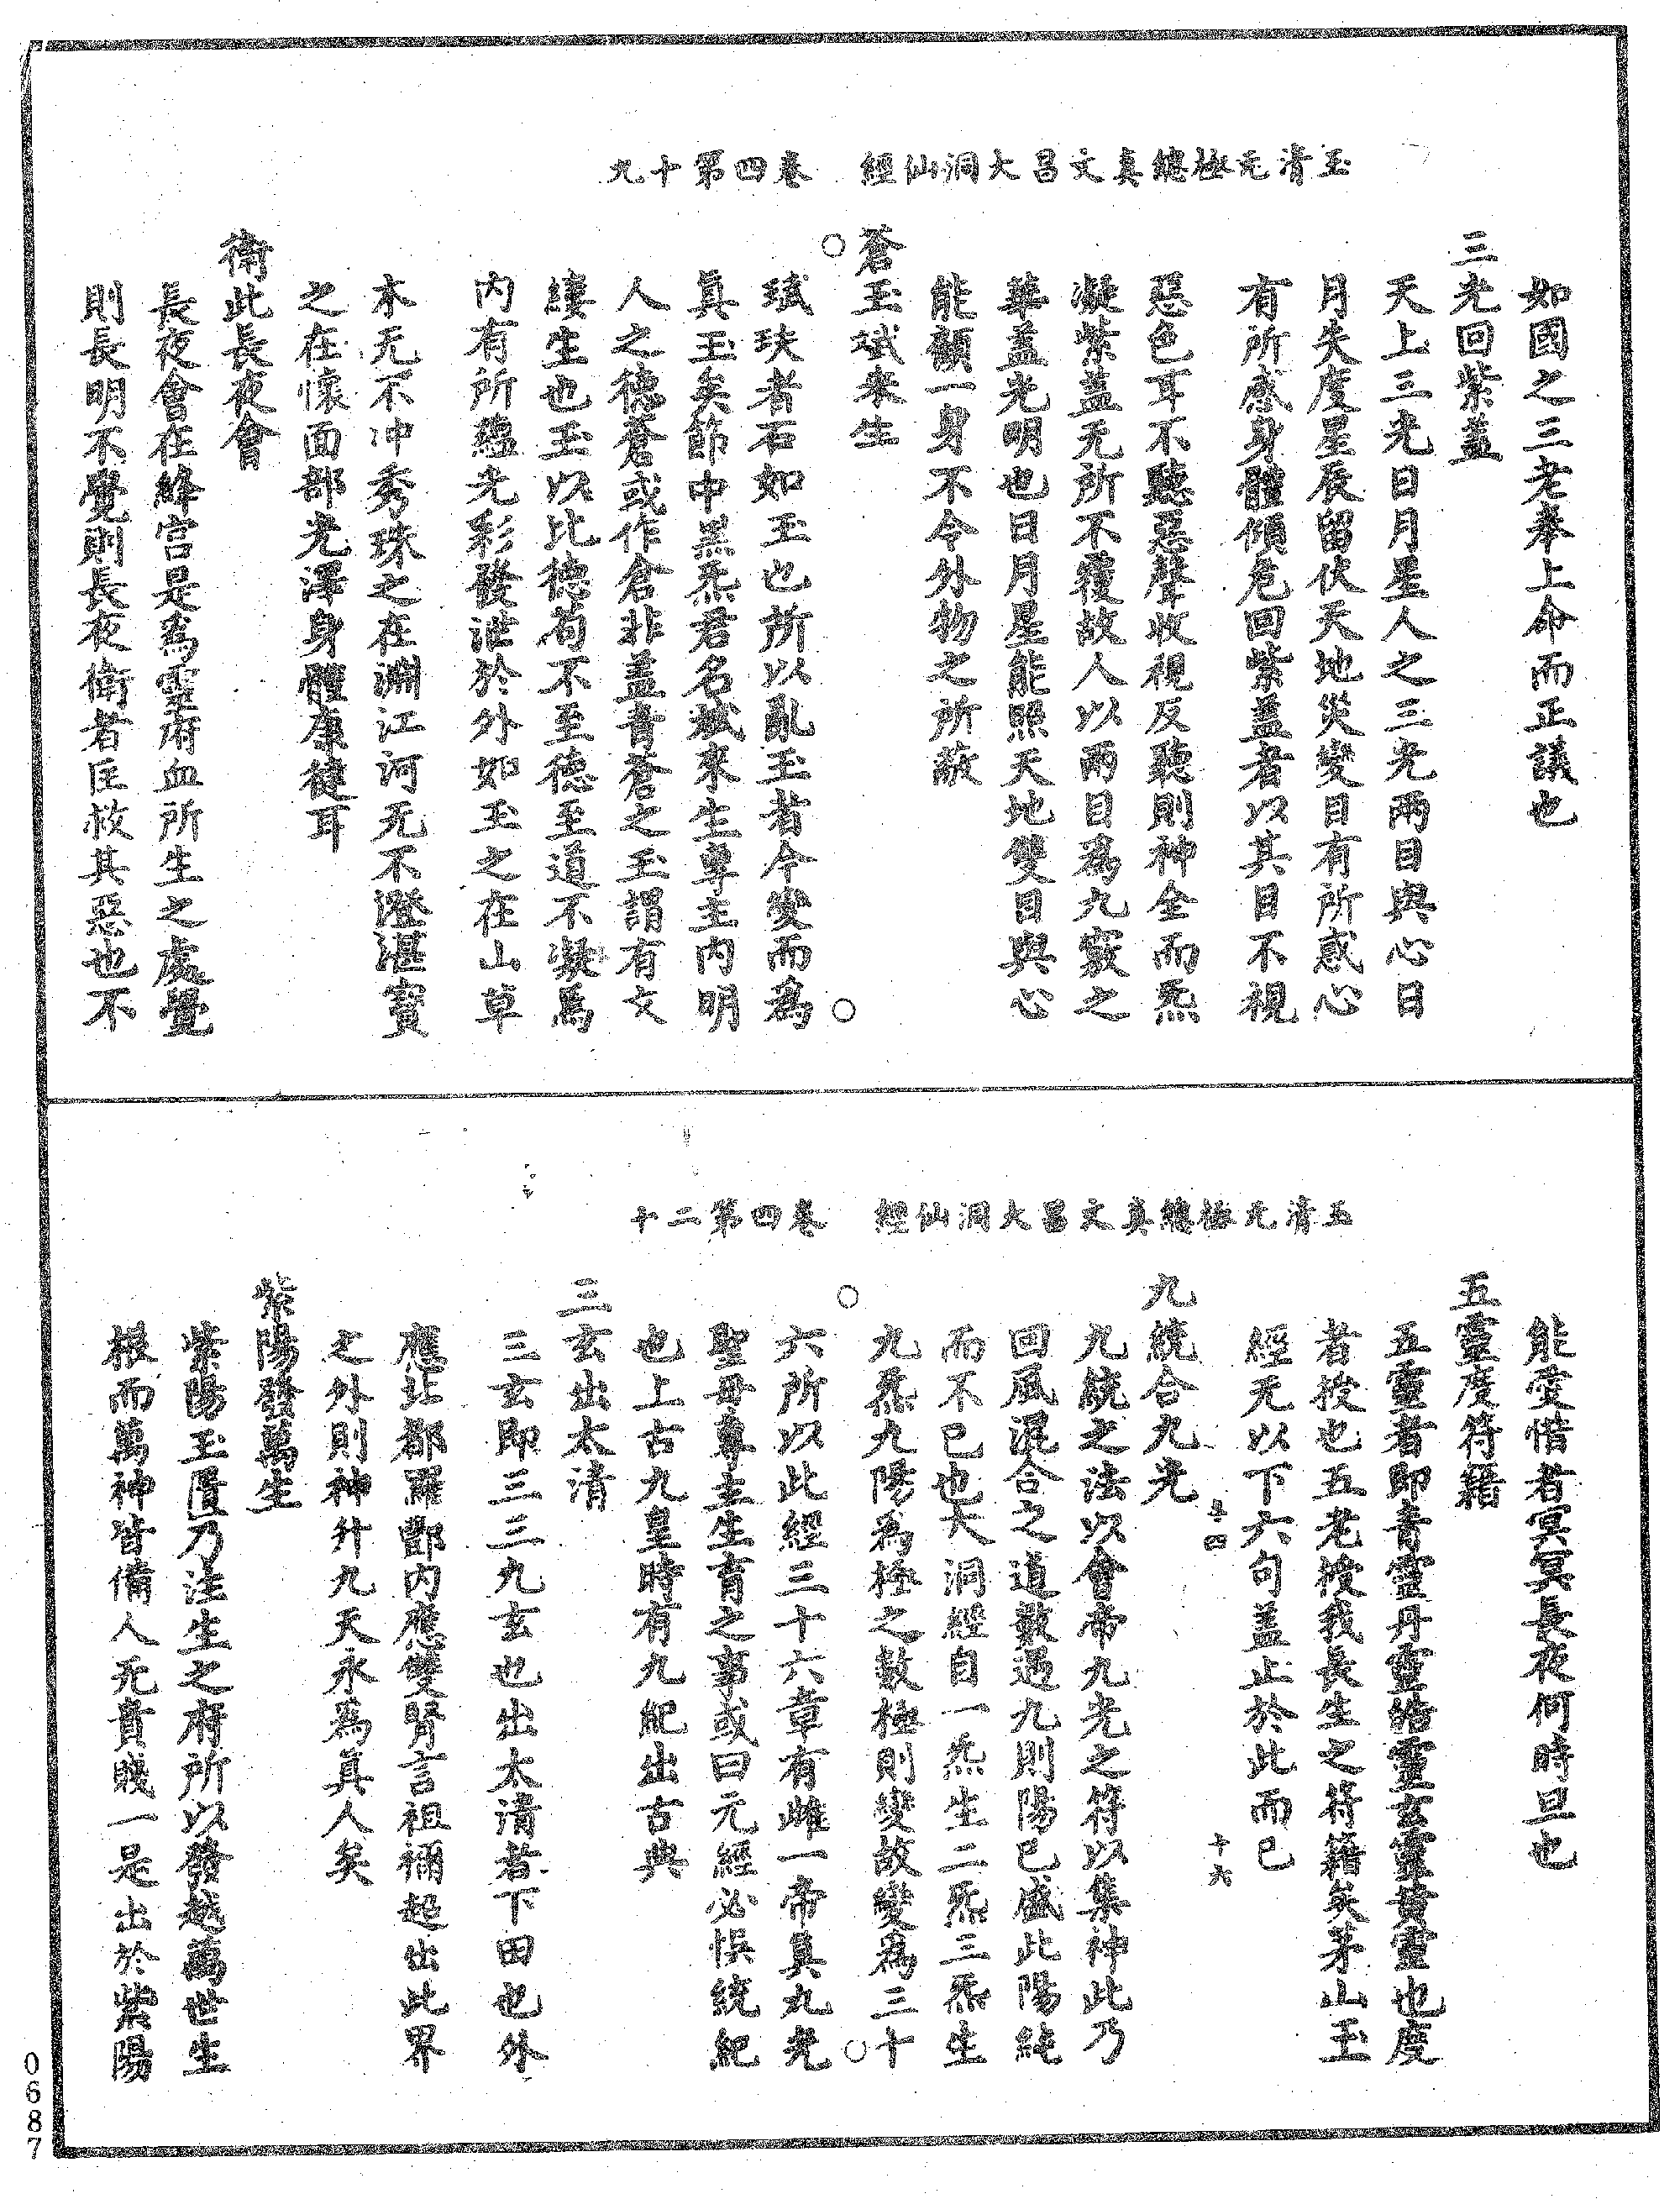 玉清无極總真文昌大洞仙經　卷四第十九
如國之三老奉上命而正議也
三光回紫蓋
天上三光日月星人之三光兩目與心日
月失度星辰留伏天地災變目有所惑心
有所感身體傾危回紫蓋者以其目不視
惡色耳不聽惡聲收視反聽則神全而炁
凝紫蓋无所不覆故人以兩目為九竅之
華蓋光明也日月星能照天地雙目與心
能顧一身不令外物之所蔽
蒼玉斌來生
珷玞者石如玉也所以亂玉者今變而為
真玉矣節中黑炁君名斌來生專主內明
人之德蒼或作倉非蓋青蒼之玉謂有文
縷生也玉以比德苟不至德至道不凝焉
內有所蘊光彩發泄於外如玉之在山草
木无不冲秀珠之在淵江河无不澄湛寶
之在懷面部光澤身體康健耳
衛此長夜會
長夜會在絳宮是為靈府血所生之處覺
則長明不覺則長夜衛者匡救其惡也不
玉清无極總真文昌大洞仙經　卷四第二十
能愛惜者冥冥長夜何時旦也
五靈度符籍
五靈者即青靈丹靈皓靈玄靈黃靈也度
者授也五老授我長生之符籍矣茅山玉
經无以下六句蓋止於此而已
五四　十六
九統合九光
九統之法以會帝九光之符以集神此乃
回風混合之道數過九則陽已盛此陽純
而不已也大洞經自一炁生二炁三炁生
九炁九陽為極之數極則變故變為三十
六所以此經三十六章有雌一帝真九光
聖母專主生育之事或曰元經必悞統紀
也上古九皇時有九紀出古典
三玄出太清
三玄即三三九玄也出太清者下田也外
應北都羅酆內應雙腎言祖禰超出此界
之外則神升九天永為真人矣
紫陽發萬生
紫陽玉匱乃注生之府所以發越萬世生
根而萬神皆備人无貴賤一是出於紫陽
0687